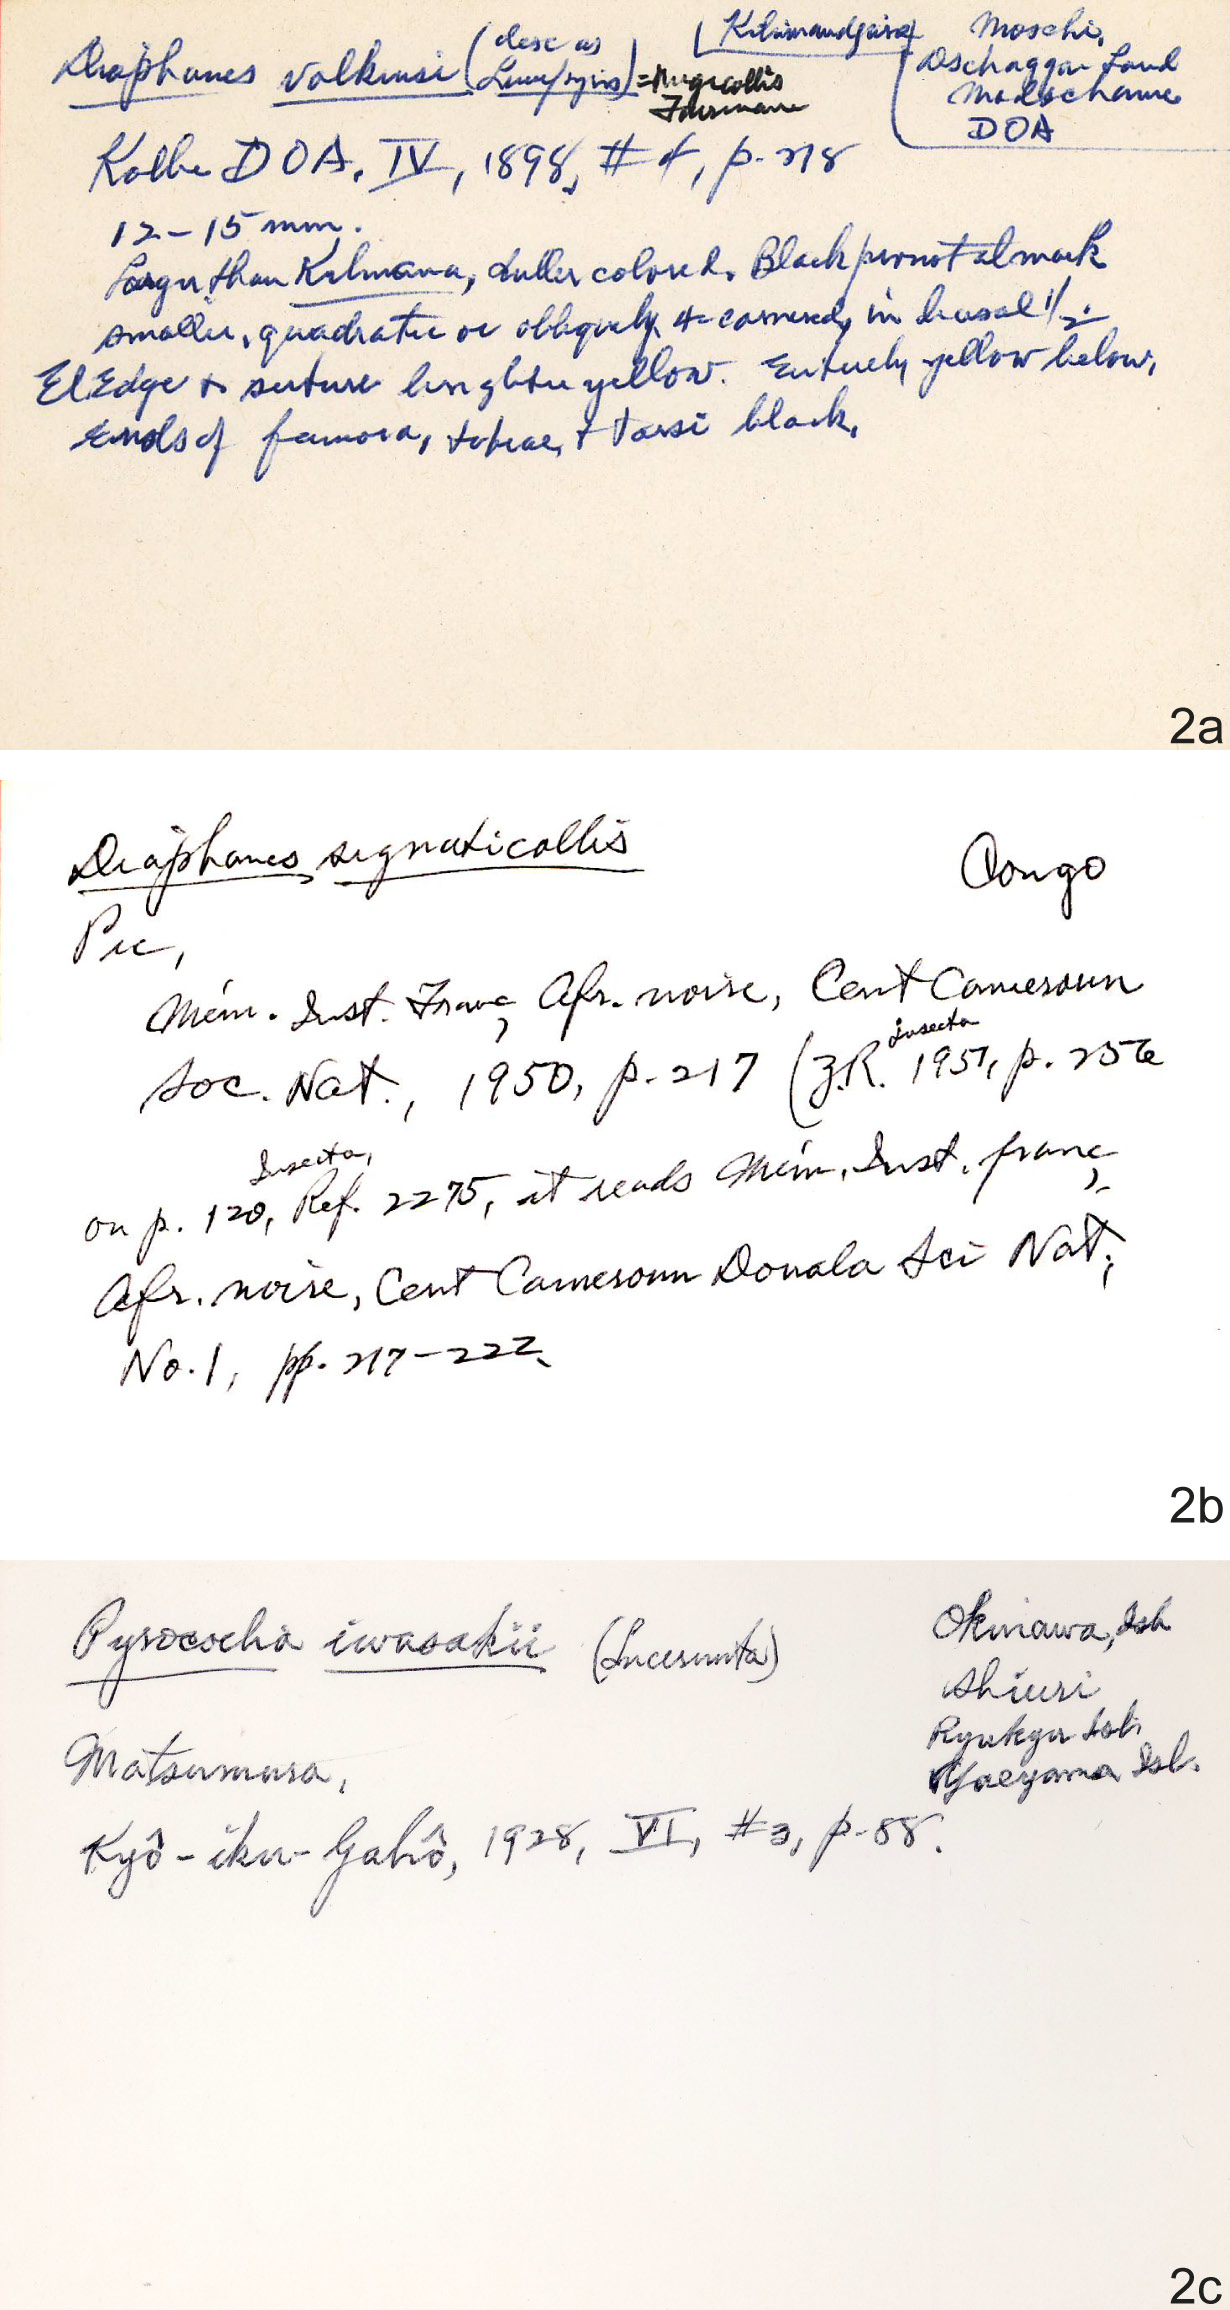 Diaphanes volkensi (desc as Lampyris) = nigricollis Fairmaire
Kilimandjaro
Moschi,
Dschagga Land
Madschame
DOA
Kolbe DOA. IV, 1898, #4, p. 218
12-15 mm.
Larger than Kilmana, duller colored. Black pronotal mark
smaller, quadrate or obliquely 4-cornered, in basal 1/2.
El Edge & suture brighter yellow. Entirely yellow below,
Ends of femora, tibiae, & tarsi black.
2a
Diaphanes signaticollis
Congo
Pic,
Mém. Inst. Franç, Afr. noire, Cent Cameroun
Soc. Nat., 1950, p. 217 (Z.R. Insecta 1951, p. 256
on p. 120, Insecta, Ref. 2275, it reads Mém. Inst. franç,
Afr. noire, Cent Cameroun Douala Sci Nat,
No. 1, pp. 217-222.
2b
Pyrocoelia iwasakii (Lucernuta)
Okinawa, Isl
Shiuri
Ryukyu Isl.
Yaeyama Isl.
Matsumura,
Kyô-iku-Gahô, 1928, VI, #3, p. 88.
2c